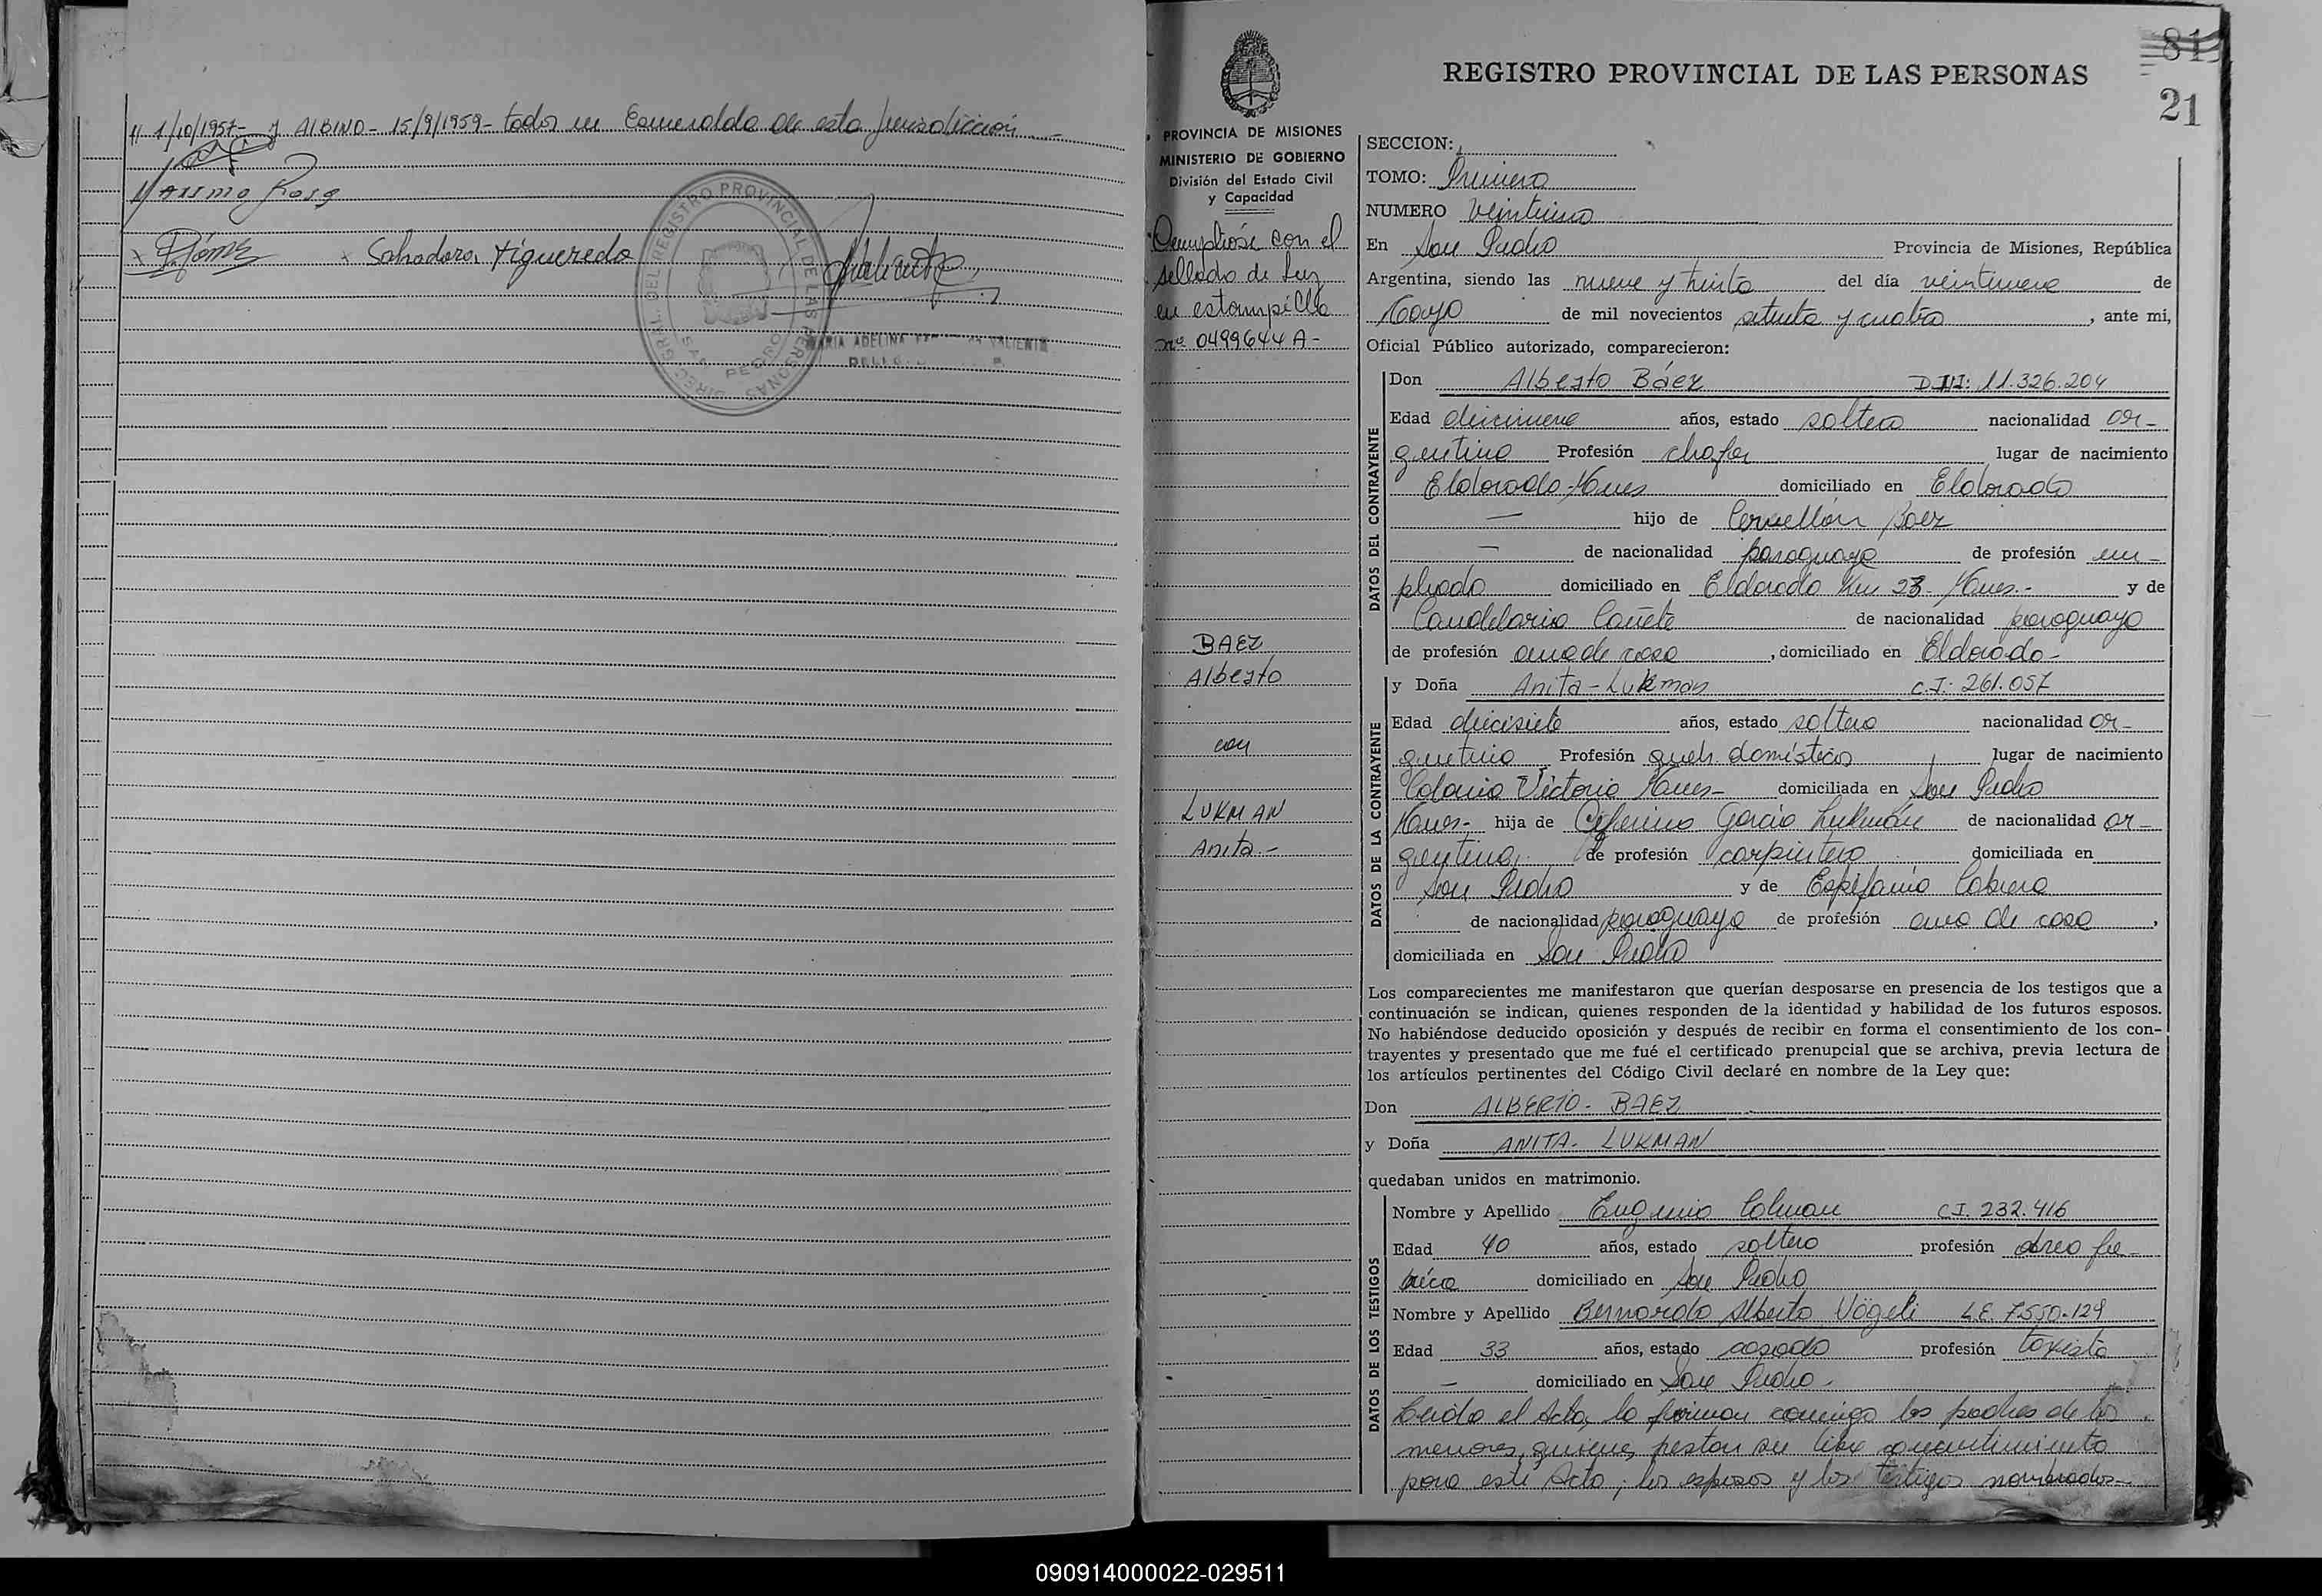 1/10/1957- y ALBINO - 15/9/1959 - todos en Esmeralda de esta jurisdicción -
Massimo Rosa
Salvadora Figueredo
DIREC. GRAL. DEL REGISTRO PROVINCIAL DE LAS PERSONAS
SAN PEDRO
MARIA ADELINA VALIENTE
81
21
REGISTRO PROVINCIAL DE LAS PERSONAS
PROVINCIA DE MISIONES
MINISTERIO DE GOBIERNO
División del Estado Civil
y Capacidad
Cumplióse con el
sellado de Ley
en estampilla
nº 0499644 A -
BAEZ
Alberto
con
LUKMAN
Anita.-
SECCION:
TOMO: Primero
NUMERO Veintiuno
En San Pedro Provincia de Misiones, República
Argentina, siendo las nueve y treinta del día veintinueve de
Mayo de mil novecientos setenta y cuatro, ante mi,
Oficial Público autorizado, comparecieron:
DATOS DEL CONTRAYENTE
Don Alberto Báez D.N.I: 11.326.204
Edad diecinueve años, estado soltero nacionalidad ar-
gentina Profesión chofer lugar de nacimiento
Eldorado-Mnes domiciliado en Eldorado
— hijo de Cervellón Báez
— de nacionalidad paraguaya de profesión em-
pleado domiciliado en Eldorado Km 23- Mnes.- y de
Candelaria Cañete de nacionalidad paraguaya
de profesión ama de casa, domiciliado en Eldorado-
DATOS DE LA CONTRAYENTE
y Doña Anita - Lukman C.I: 261.057
Edad diecisiete años, estado soltera nacionalidad ar-
gentina Profesión queh. domésticos lugar de nacimiento
Colonia Victoria Mnes- domiciliada en San Pedro
Mnes- hija de Ceferino García Lukmán de nacionalidad ar-
gentina, de profesión carpintero domiciliada en
San Pedro y de Espifania Cabrera
de nacionalidad paraguaya de profesión ama de casa,
domiciliada en San Pedro
Los comparecientes me manifestaron que querían desposarse en presencia de los testigos que a
continuación se indican, quienes responden de la identidad y habilidad de los futuros esposos.
No habiéndose deducido oposición y después de recibir en forma el consentimiento de los con-
trayentes y presentado que me fué el certificado prenupcial que se archiva, previa lectura de
los artículos pertinentes del Código Civil declaré en nombre de la Ley que:
Don ALBERTO - BAEZ
y Doña ANITA - LUKMAN
quedaban unidos en matrimonio.
DATOS DE LOS TESTIGOS
Nombre y Apellido Eugenio Colman C.I. 232.416
Edad 40 años, estado soltero profesión
domiciliado en San Pedro
Nombre y Apellido Bernardo Alberto Vögeli L.E. 7.550.129
Edad 33 años, estado casado profesión taxista
— domiciliado en San Pedro-
Leída el Acta, la firman conmigo los padres de los
menores, quienes prestan su libre consentimiento
para este Acto; los esposos y los testigos nombrados-
090914000022-029511